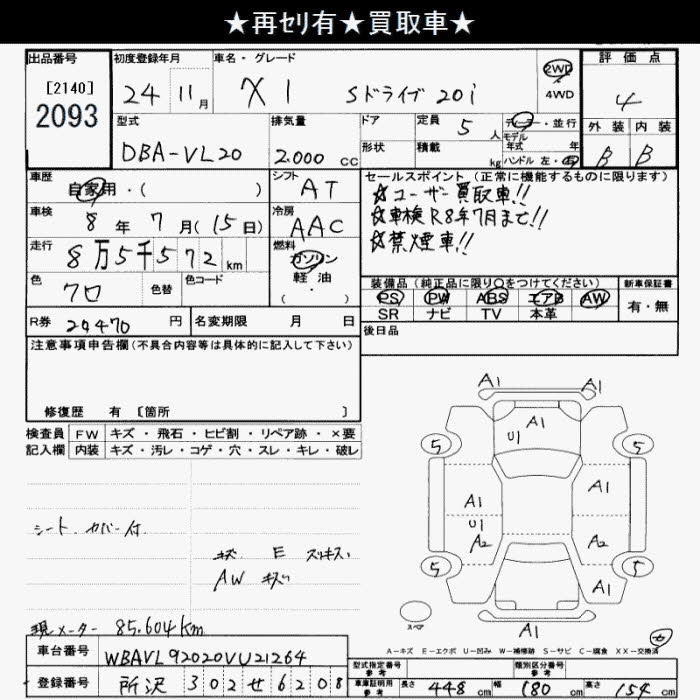 ★再セリ有★買取車★
出品番号
[2140]
2093
初度登録年月
24 11月
車名・グレード
X1 Sドライブ 20i
2WD
4WD
評価点
4
外装 内装
B B
型式
DBA-VL20
排気量
2.000 CC
ドア
形状
定員 5 人
積載 kg
ディーラー・並行
モデル
年式 年
ハンドル 左・右
車歴
自家用・( )
シフト
AT
車検
8年 7月(15日)
冷房
AAC
走行
8万5千572km
燃料
ガソリン
軽油
( ・ )
色
クロ
色替
色コード
R券 29470 円
名変期限 月 日
セールスポイント(正常に機能するものに限ります)
☆ユーザー買取車!!
☆車検R8年7月まで!!
☆禁煙車!!
装備品(純正品に限り○をつけてください)
PS PW ABS エアB AW
SR ナビ TV 本革
新車保証書
有・無
後日品
注意事項申告欄(不具合内容等は具体的に記入して下さい)
修復歴 有 [箇所 ]
検査員 FW キズ・飛石・ヒビ割・リペア跡・×要
記入欄 内装 キズ・汚レ・コゲ・穴・スレ・キレ・破レ
シート カバー付
キズ E スリキズ
AW キズ
現メーター 85.604km
A1 A1
A1
U1
5 5
A1 A1
U1
A2 A2
5 5
A1
A1
スペア
A-キズ E-エクボ U-凹み W-補修跡 S-サビ C-腐食 XX-交換済
車台番号 WBAVL92020VU21264
登録番号 所沢 302 せ 6208
型式指定番号
参考
類別区分番号
参考
車庫証明用
参考
長さ 448 cm 幅 180 cm 高さ 154 cm